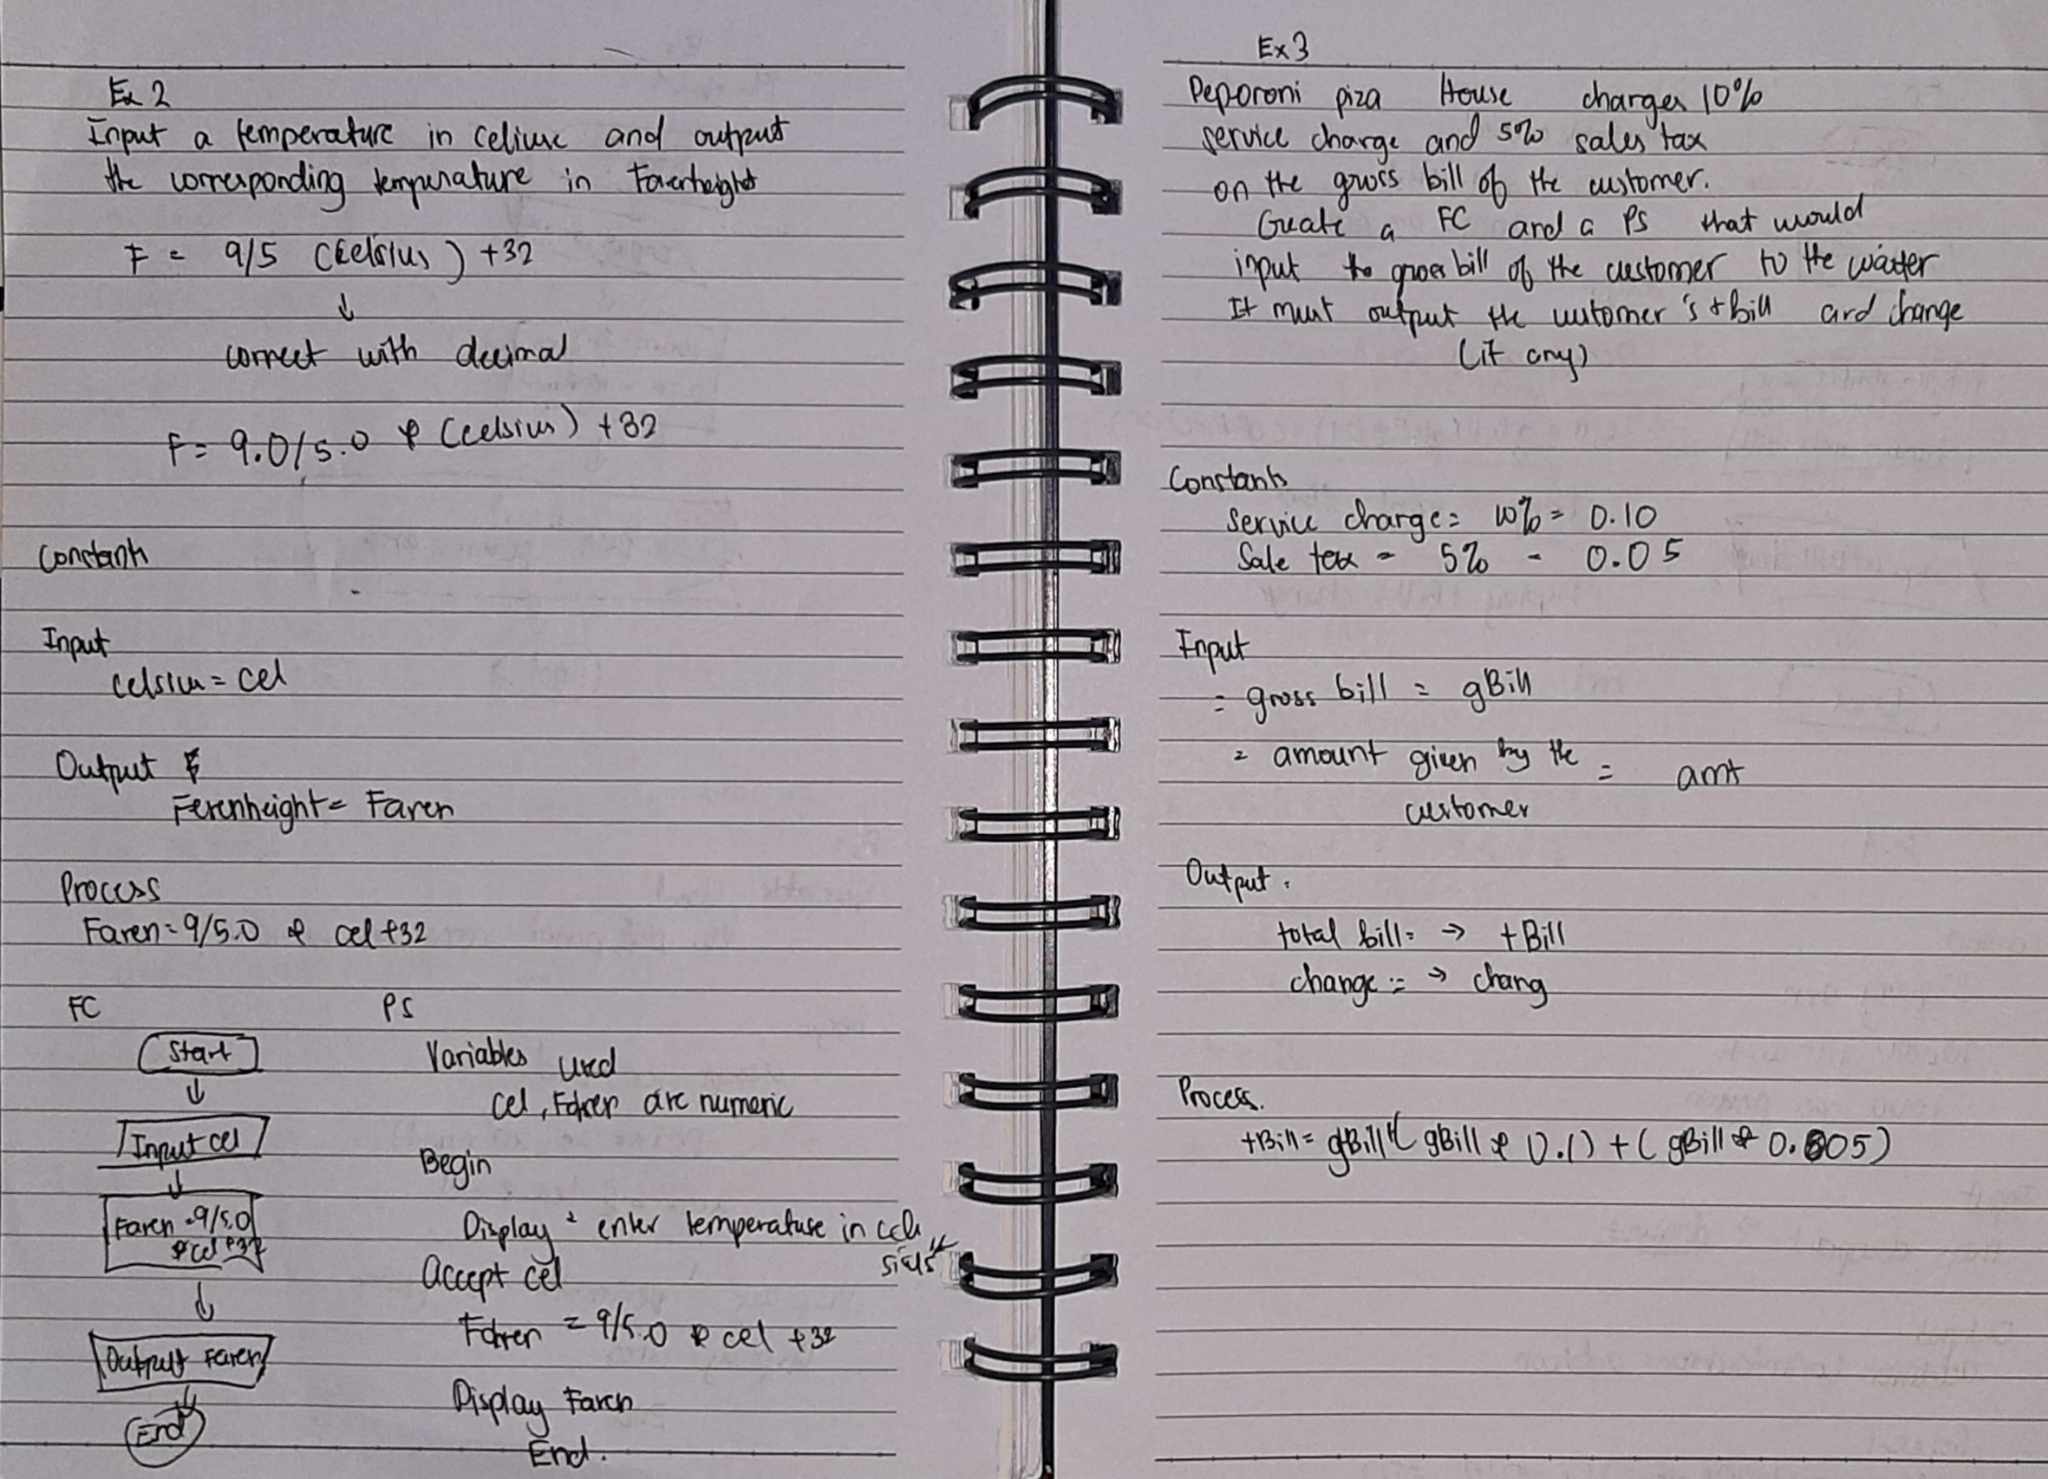 Ex 2
Input a temperature in celiuc and output
the corresponding temperature in Faverheight
F = 9/5 (Celsius) +32
↓
correct with decimal
F = 9.0/5.0 * (celsius) +32
Constants
Input
celsius = cel
Output
Ferenheight = Faren
Process
Faren = 9/5.0 * cel +32
FC
Start
↓
Input cel
↓
Faren = 9/5.0
* cel +32
↓
Output Faren
↓
End
PS
Variables used
cel, Faren are numeric
Begin
Display " enter temperature in cel
sius"
Accept cel
Faren = 9/5.0 * cel +32
Display Faren
End.
Ex 3
Peporoni piza House charges 10%
service charge and 5% sales tax
on the gross bill of the customer.
Create a FC and a PS that would
input the gross bill of the customer to the waiter
It must output the customer's tbill and change
(if any)
Constants
Service charge = 10% = 0.10
Sale tax = 5% = 0.05
Input
= gross bill = gBill
= amount given by the = amt
customer
Output.
total bill = → tBill
change := → chang
Process.
tBill = gBill + (gBill * 0.1) + (gBill * 0.05)